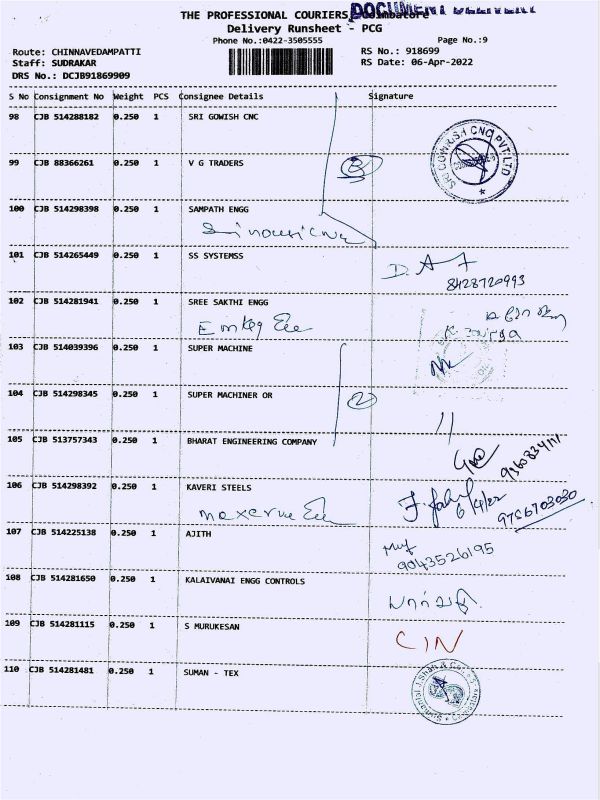 THE PROFESSIONAL COURIERS, Coimbatore
Delivery Runsheet - PCG
Phone No.:0422-3505555 Page No.:9
Route: CHINNAVEDAMPATTI RS No.: 918699
Staff: SUDRAKAR RS Date: 06-Apr-2022
DRS No.: DCJB91869909
S No Consignment No Weight PCS Consignee Details Signature
98 CJB 514288182 0.250 1 SRI GOWISH CNC
SRI GOWRISH CNC PVT LTD
99 CJB 88366261 0.250 1 V G TRADERS
100 CJB 514298398 0.250 1 SAMPATH ENGG
101 CJB 514265449 0.250 1 SS SYSTEMSS
8428720993
102 CJB 514281941 0.250 1 SREE SAKTHI ENGG
103 CJB 514039396 0.250 1 SUPER MACHINE
104 CJB 514298345 0.250 1 SUPER MACHINER OR
2
105 CJB 513757343 0.250 1 BHARAT ENGINEERING COMPANY
106 CJB 514298392 0.250 1 KAVERI STEELS
6/4/22
9756703030
107 CJB 514225138 0.250 1 AJITH
9043526195
108 CJB 514281650 0.250 1 KALAIVANAI ENGG CONTROLS
109 CJB 514281115 0.250 1 S MURUKESAN
CIN
110 CJB 514281481 0.250 1 SUMAN - TEX